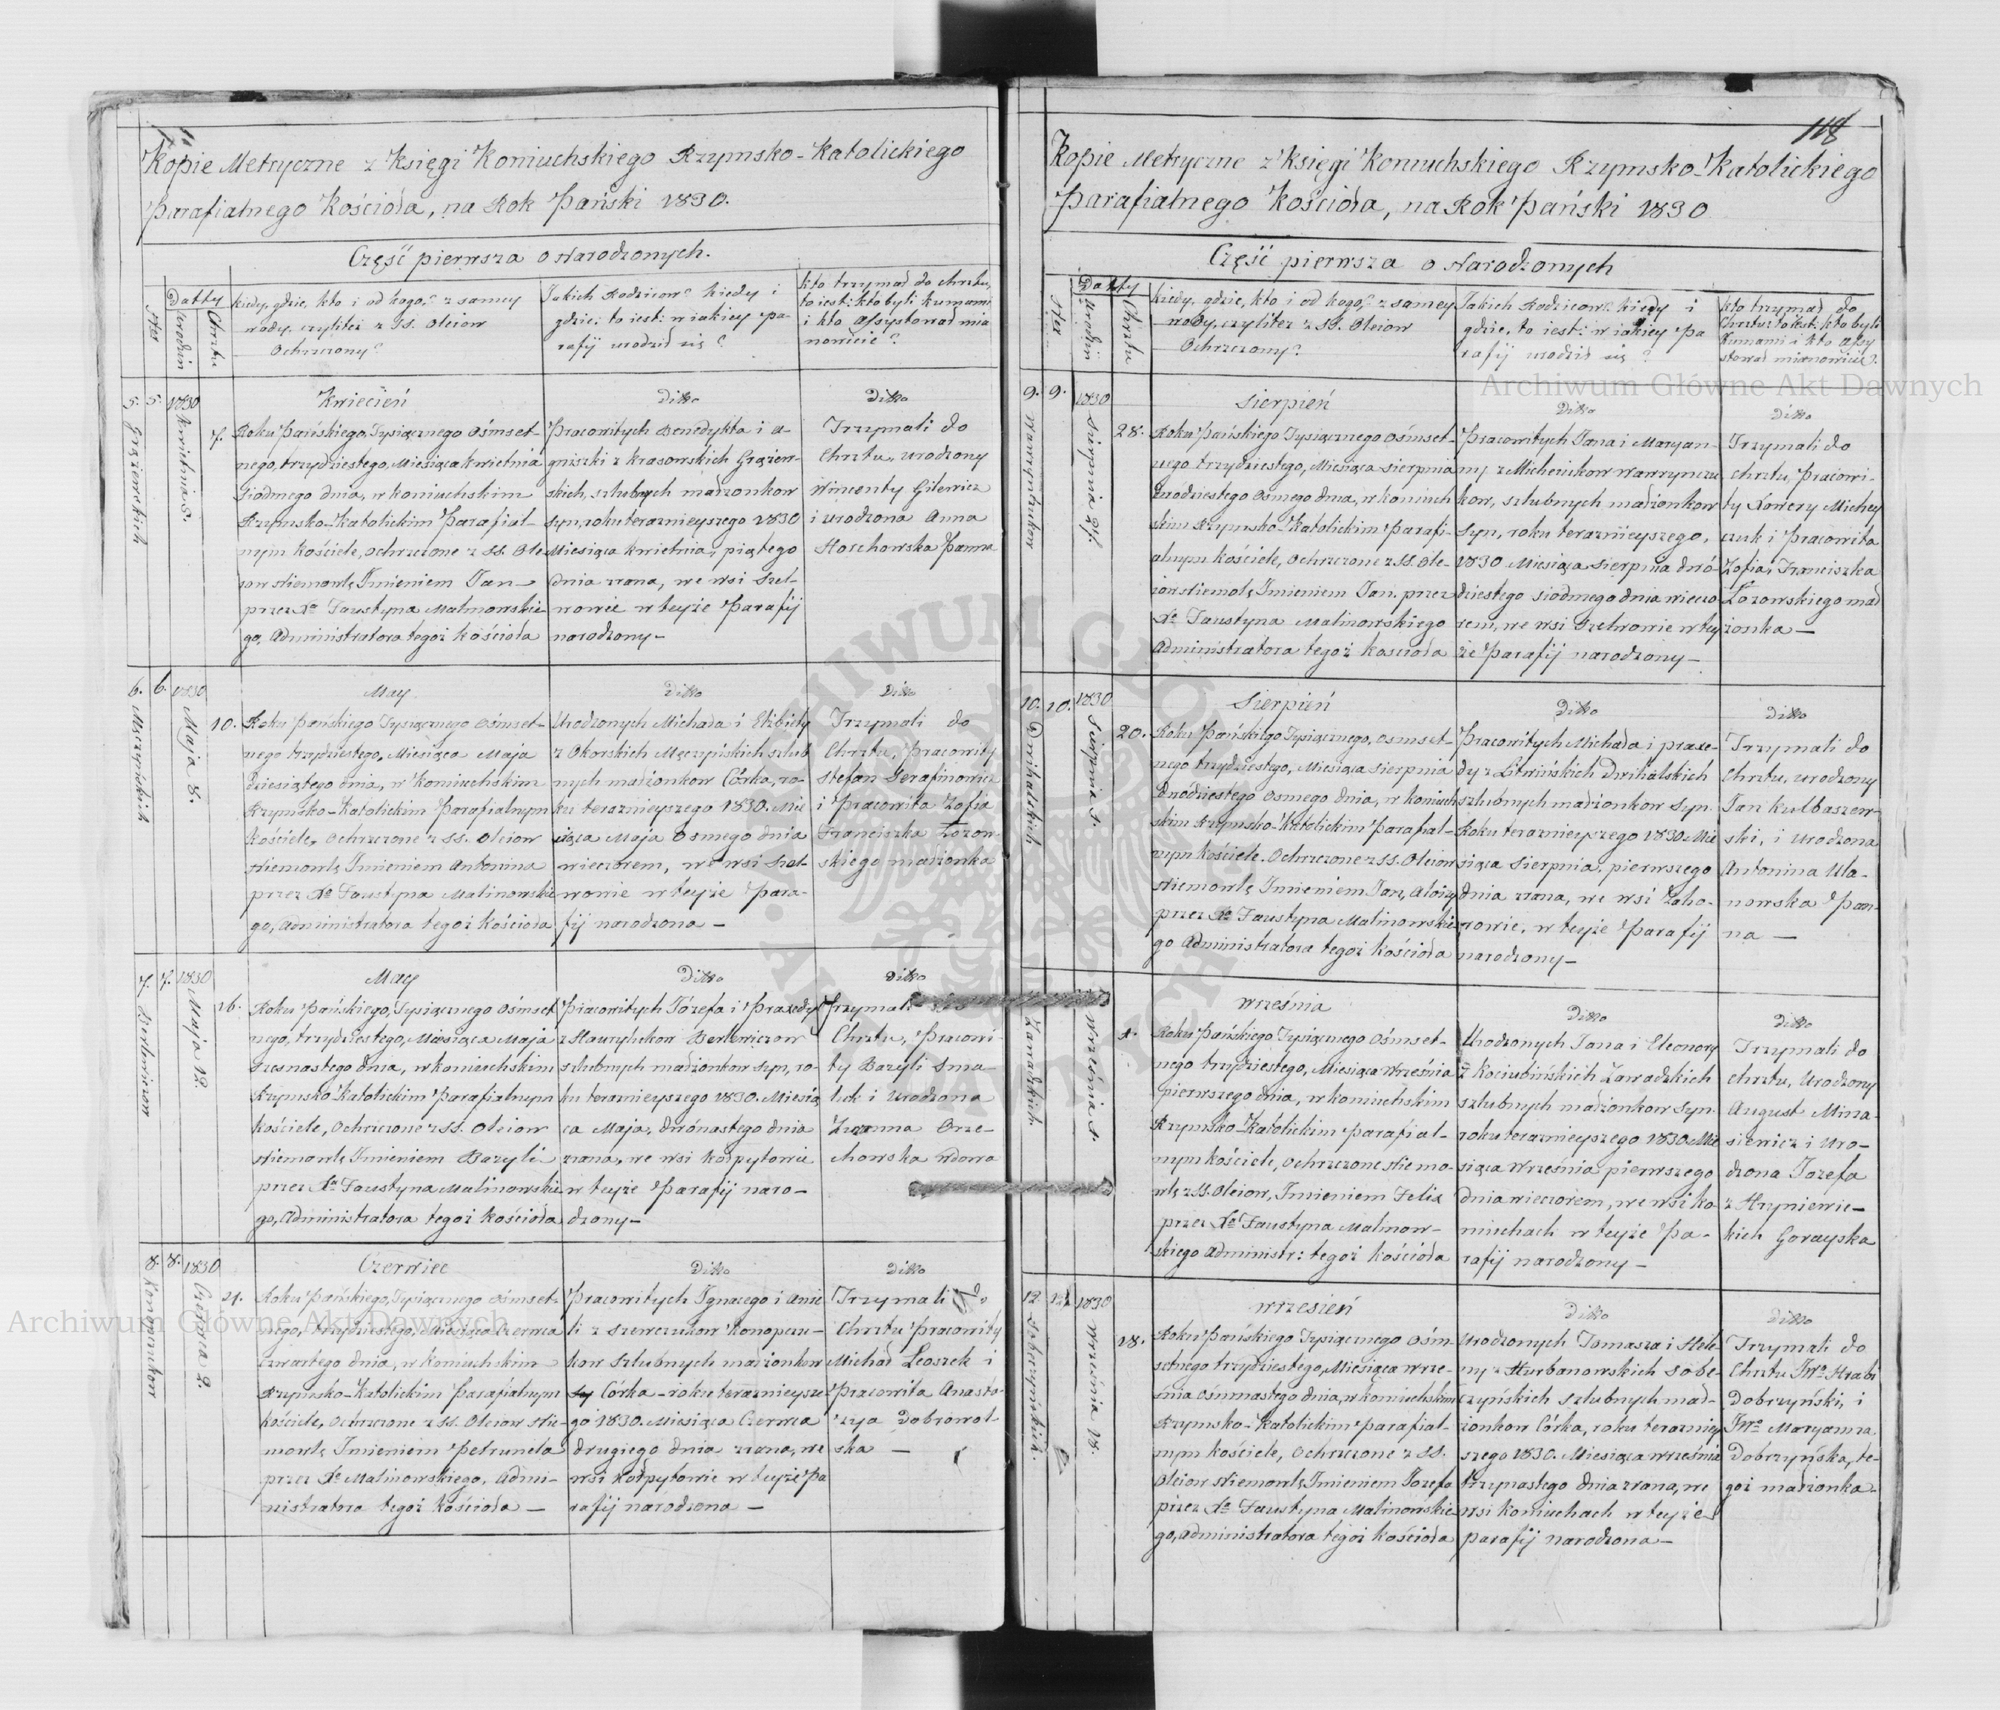 Kopie Metryczne z Księgi Koniuchskiego Rzymsko-Katolickiego
Parafialnego Kościoła, na Rok Pański 1830.
Część pierwsza o Narodzonych.
Datty
Nro
Urodzin
Chrztu
kiedy, gdzie, kto i od kogo? z samey
wody, czyliteż z SS. Oleiow
Ochrzczony?
Jakich Rodzicow? kiedy i
gdzie, to iest: w iakiey Pa-
rafij urodził się?
kto trzymał do chrztu,
to iest: kto byli kumami
i kto assystował mia
nowicie?
5. 5. 1830
Grążewskich
Kwietnia 5.
7.
Kwiecień
Roku Pańskiego, Tysiącznego Ośmset-
nego, trzydziestego, Miesiąca Kwietnia
Siódmego dnia, w Koniuchskim
Rzymsko-Katolickim Parafial-
nym Kościele, ochrzczone z SS. Ole
iow Niemowlę Imieniem Jan
przez Xa Faustyna Malinowskie
go, Administratora tegoż Kościoła
Ditto
Pracowitych Benedykta i A-
gniszki z Krasowskich Grążew-
skich, szlubnych małżonkow
Syn, roku teraznieyszego 1830
Miesiąca Kwietnia, piątego
dnia zrana, we wsi Szel-
wowie w teyże Parafij
narodzony-
Ditto
Trzymali do
Chrztu, urodzony
Wincenty Gilewicz
i urodzona Anna
Hochowska Panna
6. 6. 1830
Męczyńskich
Maja 8.
10.
May
Roku Pańskiego Tysiącznego Ośmset-
nego trzydziestego, Miesiąca Maja
dziesiątego dnia, w Koniuchskim
Rzymsko-Katolickim Parafialnym
Kościele, Ochrzczone z SS. Oleiow
Niemowlę Imieniem Antonina
przez Xa Faustyna Malinowskie
go, Administratora tegoż Kościoła
Ditto
Urodzonych Michała i Elżbiety
z Okorskich Męczyńskich szlub
nych małżonkow Córka, ro-
ku teraznieyszego 1830. Mie
siąca Maja Osmego dnia
wieczorem, we wsi Szel-
wowie w teyże Para-
fij narodzona -
Ditto
Trzymali do
Chrztu, Pracowity
Stefan Serafinowicz
i Pracowita Zofia
Franciszka Łozow-
skiego małżonka
7. 7. 1830
Berlewiczow
Maja 12.
16.
May
Roku Pańskiego, Tysiącznego Ośmset
nego, trzydziestego, Miesiąca Maja
szesnastego dnia, w Koniuchskim
Rzymsko-Katolickim Parafialnym
Kościele, Ochrzczone z SS. Oleiow
Niemowlę Imieniem Bazyli
przez Xa Faustyna Malinowskie
go, Administratora tegoż Kościoła
Ditto
Pracowitych Józefa i Praxedy
z Hawrylukow Berlewiczow
szlubnych małżonkow Syn, ro-
ku teraznieyszego 1830. Miesią
ca Maja, dwónastego dnia
zrana, we wsi Kołpytowie
w teyże Parafij naro-
dzony-
Ditto
Trzymali do
Chrztu, Pracowi-
ty Bazyli Sma
luk i Urodzona
Zuzanna Orze-
chowska wdowa
8. 8. 1830
Konopczukow
Czerwca 2
4.
Czerwiec
Roku Pańskiego, Tysiącznego Ośmset-
nego, trzydziestego, Miesiąca Czerwca
czwartego dnia, w Koniuchskim
Rzymsko-Katolickim Parafialnym
Kościele, Ochrzczone z SS. Oleiow Nie-
mowlę Imieniem Petrunela
przez Xa Malinowskiego, Admi-
nistratora tegoż Kościoła -
Ditto
Pracowitych Ignacego i Anie
li z Szewczukow Konopczu-
kow szlubnych małżonkow
Córka - roku teraznieysze
go 1830. Miesiąca Czerwca
drugiego dnia zrana, we
wsi Kołpytowie w teyże Pa
rafij narodzona -
Ditto
Trzymali do
Chrztu Pracowity
Michał Leoszek i
Pracowita Anasta-
zya Dobrowol-
ska -
118
Kopie Metryczne z Księgi Koniuchskiego Rzymsko-Katolickiego
Parafialnego Kościoła, na Rok Pański 1830
Część pierwsza o Narodzonych
Datty
Nro
Urodzin
Chrztu
kiedy, gdzie, kto i od kogo? z samey
wody, czyliteż z SS. Oleiow
Ochrzczony?
Jakich Rodzicow? kiedy i
gdzie, to iest: w iakiey Pa
rafij urodził się?
kto trzymał do
Chrztu: to iest: kto byli
kumami i kto assy
stował mianowicie?
9. 9. 1830
Wawryniukow
Sierpnia 27.
28.
Sierpień
Roku Pańskiego Tysiącznego Ośmset-
nego trzydziestego, Miesiąca Sierpnia
dwódziestego Osmego dnia, w Koniuch
skim Rzymsko-Katolickim Parafi-
alnym Kościele, Ochrzczone z SS. Ole-
iow Niemowlę Imieniem Jan. przez
Xa Faustyna Malinowskiego
Administratora tegoż Kościoła
Ditto
Pracowitych Jana i Maryan-
ny z Micheiukow Wawryniu
kow, szlubnych małżonkow
Syn, roku teraznieyszego,
1830 Miesiąca Sierpnia dwó-
dziestego siódmego dnia wieczo
rem, we wsi Szelwowie w tey
że Parafij narodzony-
Ditto
Trzymali do
Chrztu, Pracowi-
ty Xawery Michey
czuk i Pracowita
Zofia, Franciszka
Łozowskiego mał
żonka-
10. 10. 1830
Dwihalskich
Sierpnia 1.
20.
Sierpień
Roku Pańskiego Tysiącznego, Ośmset-
nego trzydziestego, Miesiąca Sierpnia
dwódziestego Osmego dnia, w Koniuch
skim Rzymsko-Katolickim Parafial-
nym Kościele. Ochrzczone z SS. Oleiow
Niemowlę Imieniem Jan, Aloizy
przez Xa Faustyna Malinowskie
go Administratora tegoż Kościoła
Ditto
Pracowitych Michała i Praxe-
dy z Litwińskich Dwihalskich
szlubnych małżonkow Syn.
Roku teraznieyszego 1830. Mie
siąca Sierpnia, pierwszego
dnia zrana, we wsi Zaho-
rowie, w teyże Parafij
narodzony-
Ditto
Trzymali do
Chrztu, urodzony
Jan Kulbaszew-
ski, i Urodzona
Antonina Ula-
nowska Pan-
na -
Zawadzkich
Września 1.
1.
Września
Roku Pańskiego Tysiącznego Ośmset-
nego trzydziestego, Miesiąca Września
pierwszego dnia, w Koniuchskim
Rzymsko-Katolickim Parafial-
nym Kościele, Ochrzczone Niemo-
wlę z SS. Oleiow, Imieniem Felix
przez Xa Faustyna Malinow-
skiego Administr: tegoż Kościoła
Ditto
Urodzonych Jana i Eleonory
z Kociubińskich Zawadzkich
szlubnych małżonkow Syn.
roku teraznieyszego 1830. Mie
siąca Września pierwszego
dnia wieczorem, we wsi Ko-
niuchach w teyże Pa-
rafij narodzony-
Ditto
Trzymali do
Chrztu, Urodzony
August Mina-
siewicz i Uro-
dzona Jozefa
z Hryniewic-
kich Gorayska
12. 12. 1830
Sobczyńskich.
Września 13.
18.
Wrzesień
Roku Pańskiego Tysiącznego Ośm
setnego trzydziestego, Miesiąca Wrze-
śnia Ośmnastego dnia, w Koniuchskim
Rzymsko-Katolickim Parafial-
nym Kościele, Ochrzczone z SS.
Oleiow Niemowlę, Imieniem Jozefa
przez Xa Faustyna Malinowskie
go, Administratora tegoż Kościoła
Ditto
Urodzonych Tomasza i Hele
ny z Hurbanowskich Sobc-
czyńskich szlubnych mał-
żonkow Córka, roku terazniey
szego 1830. Miesiąca Września
trzynastego dnia zrana, we
wsi Koniuchach w teyże
parafij narodzona-
Ditto
Trzymali do
Chrztu JWo Hrabi
Dobrzyński, i
JWa Maryanna
Dobrzyńska, te-
goż małżonka-
Archiwum Główne Akt Dawnych
Archiwum Główne Akt Dawnych